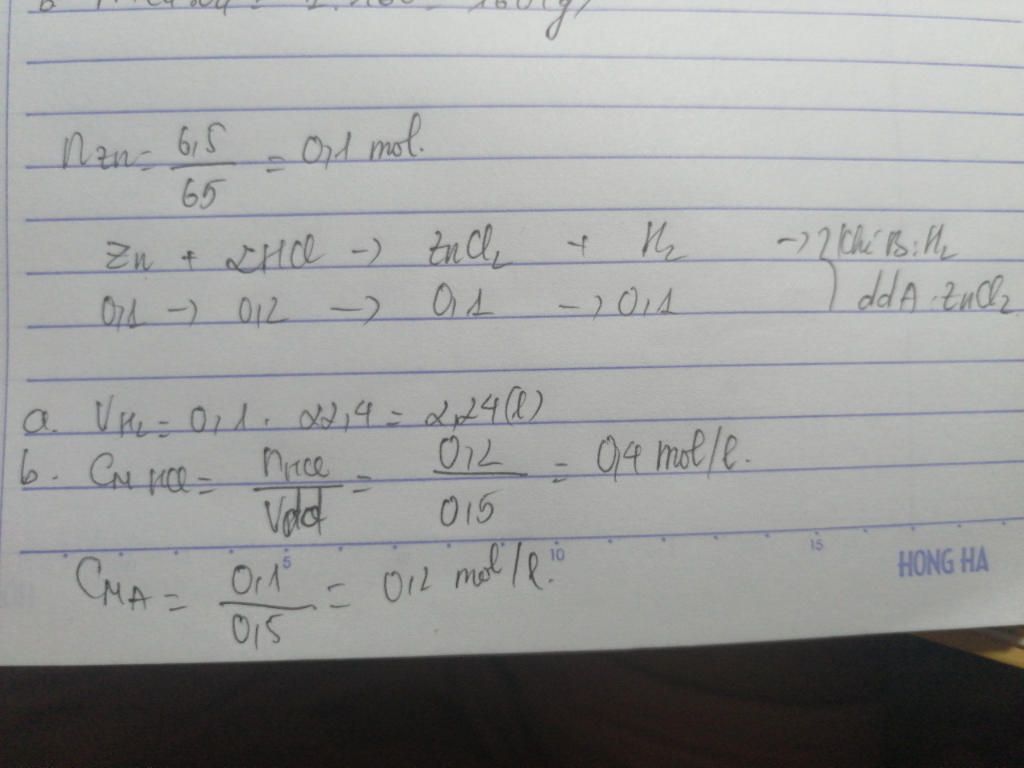 nZn = 6,5/65 = 0,1 mol.
Zn + 2HCl -> ZnCl2 + H2 -> } Khí B: H2
0,1 -> 0,2 -> 0,1 -> 0,1 ddA: ZnCl2
a. VH2 = 0,1 . 22,4 = 2,24 (l)
b. CM HCl = nHCl/Vdd = 0,2/0,5 = 0,4 mol/l.
5 10 15
HONG HA
CMA = 0,1/0,5 = 0,2 mol/l.